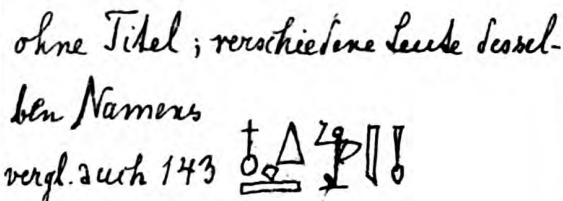 ohne Titel; verschiedene Leute dessel-
ben Namens
vergl. auch 143